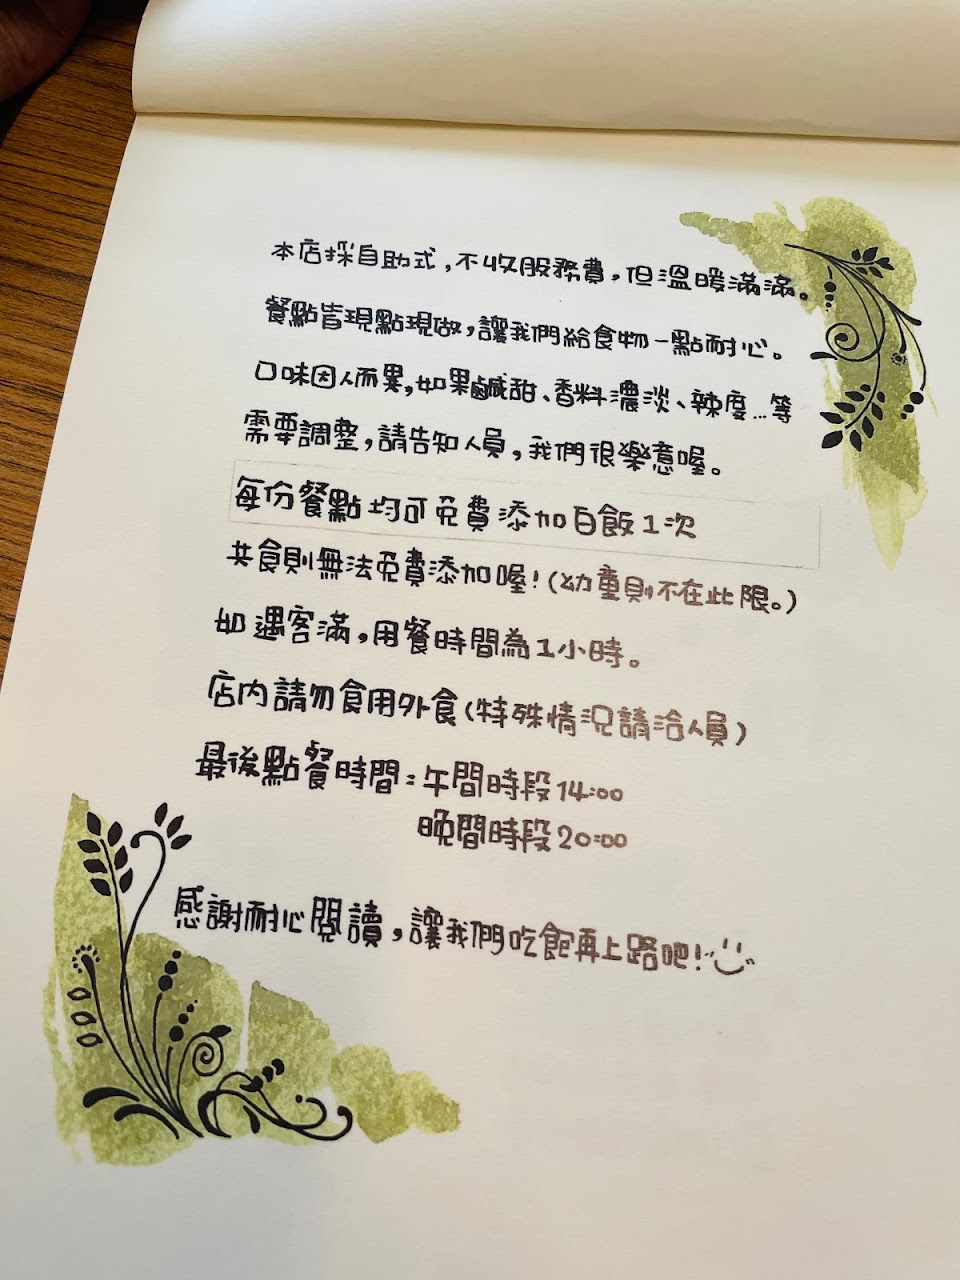 本店採自助式,不收服務費,但溫暖滿滿。
餐點皆現點現做,讓我們給食物一點耐心。
口味因人而異,如果鹹甜、香料濃淡、辣度...等
需要調整,請告知人員,我們很樂意喔。
每份餐點均可免費添加白飯1次
共食則無法免費添加喔!(幼童則不在此限。)
如遇客滿,用餐時間為1小時。
店內請勿食用外食(特殊情況請洽人員)
最後點餐時間:午間時段14:00
晚間時段20:00
感謝耐心閱讀,讓我們吃飽再上路吧!